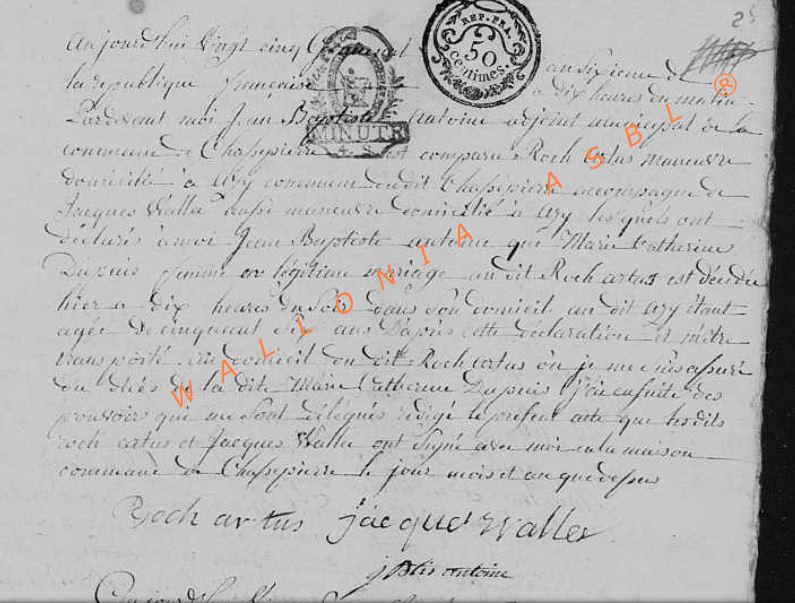 25
REP. FRA.
50
centimes.
MINUTE
4. S.
aujourd'hui vingt cinq Germinal an sixieme de
la republique française a dix heures du matin
Pardevant moi Jean Baptiste Antoine adjoint municipal de la
commune de Chassepierre est comparu Roch Artus manuvre
domicilié à Azy commune dudit Chassepierre accompagné de
Jacques Walla aussi manuvre domicilié à Azy lesquels ont
déclarés à moi Jean Baptiste antoine que Marie Catherine
Dupuis femme en légitime mariage au dit Roch artus est décédée
hier a dix heures du soir dans son domicil au dit azy étant
agée de cinquant ans D'après cette déclaration et m'être
transporté au domicil du dit Roch artus où je me suis assuré
du décès de la dite Marie Catherine Dupuis J'ai ensuite des
pouvoirs qui me sont délégués rédigé le présent acte que lesdits
roch artus et Jacques Walla ont signé avec moi a la maison
commune de Chassepierre le jour mois et an que dessus
Roch artus jacque walle
j Btis antoine
Aujourd'hui
WALLONIA ASBL ®